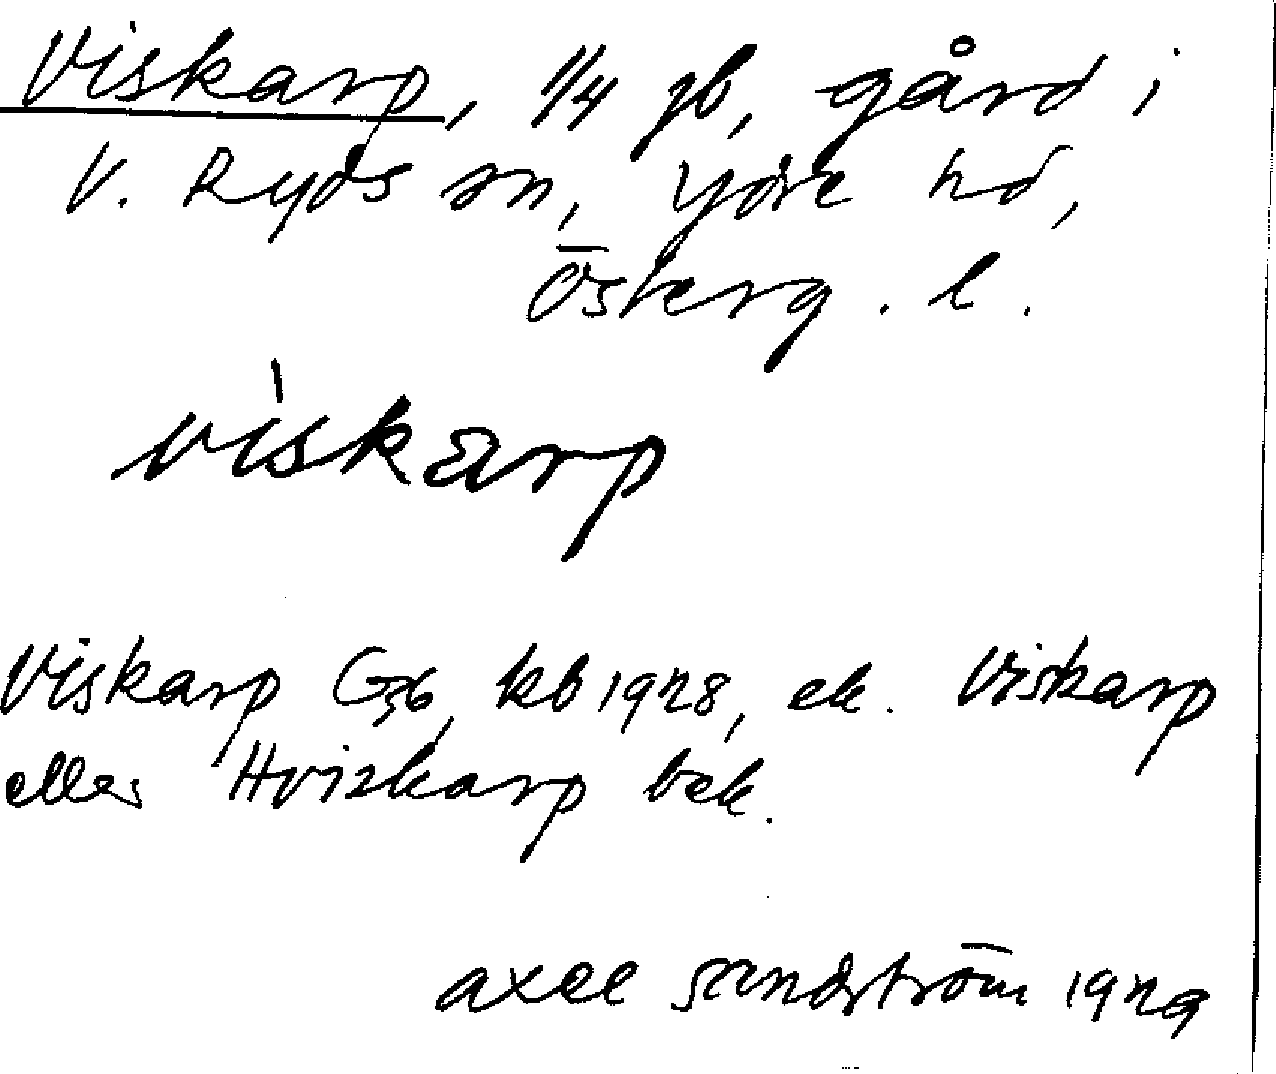 Viskarp, 1/4 gb, gård i
V. Ryds sn, Ydre hd,
Österg. l.
viskarp
Viskarp G36, kb 1928, ek. Viskarp
eller Hviskarp bek.
Axel Sandström 1929